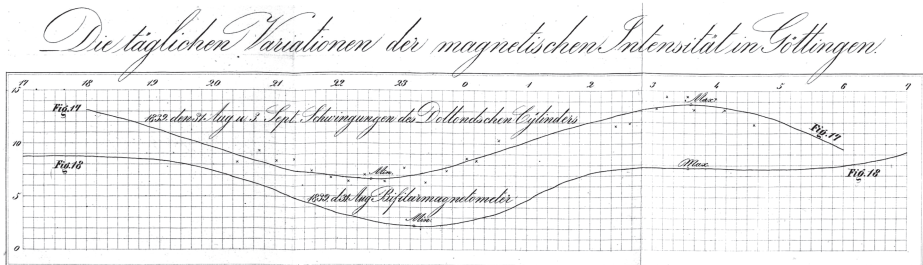 Die täglichen Variationen der magnetischen Intensität in Göttingen.
17 18 19 20 21 22 23 0 1 2 3 4 5 6 7
15
Fig. 17
Max.
1839 den 31. Aug u. 3. Sept. Schwingungen des Dollondschen Cÿlinders
Fig. 17
10
Min.
Fig. 18
Max
Fig. 18
5
1839. d. 31. Aug. Bifilarmagnetometer
Min.
0